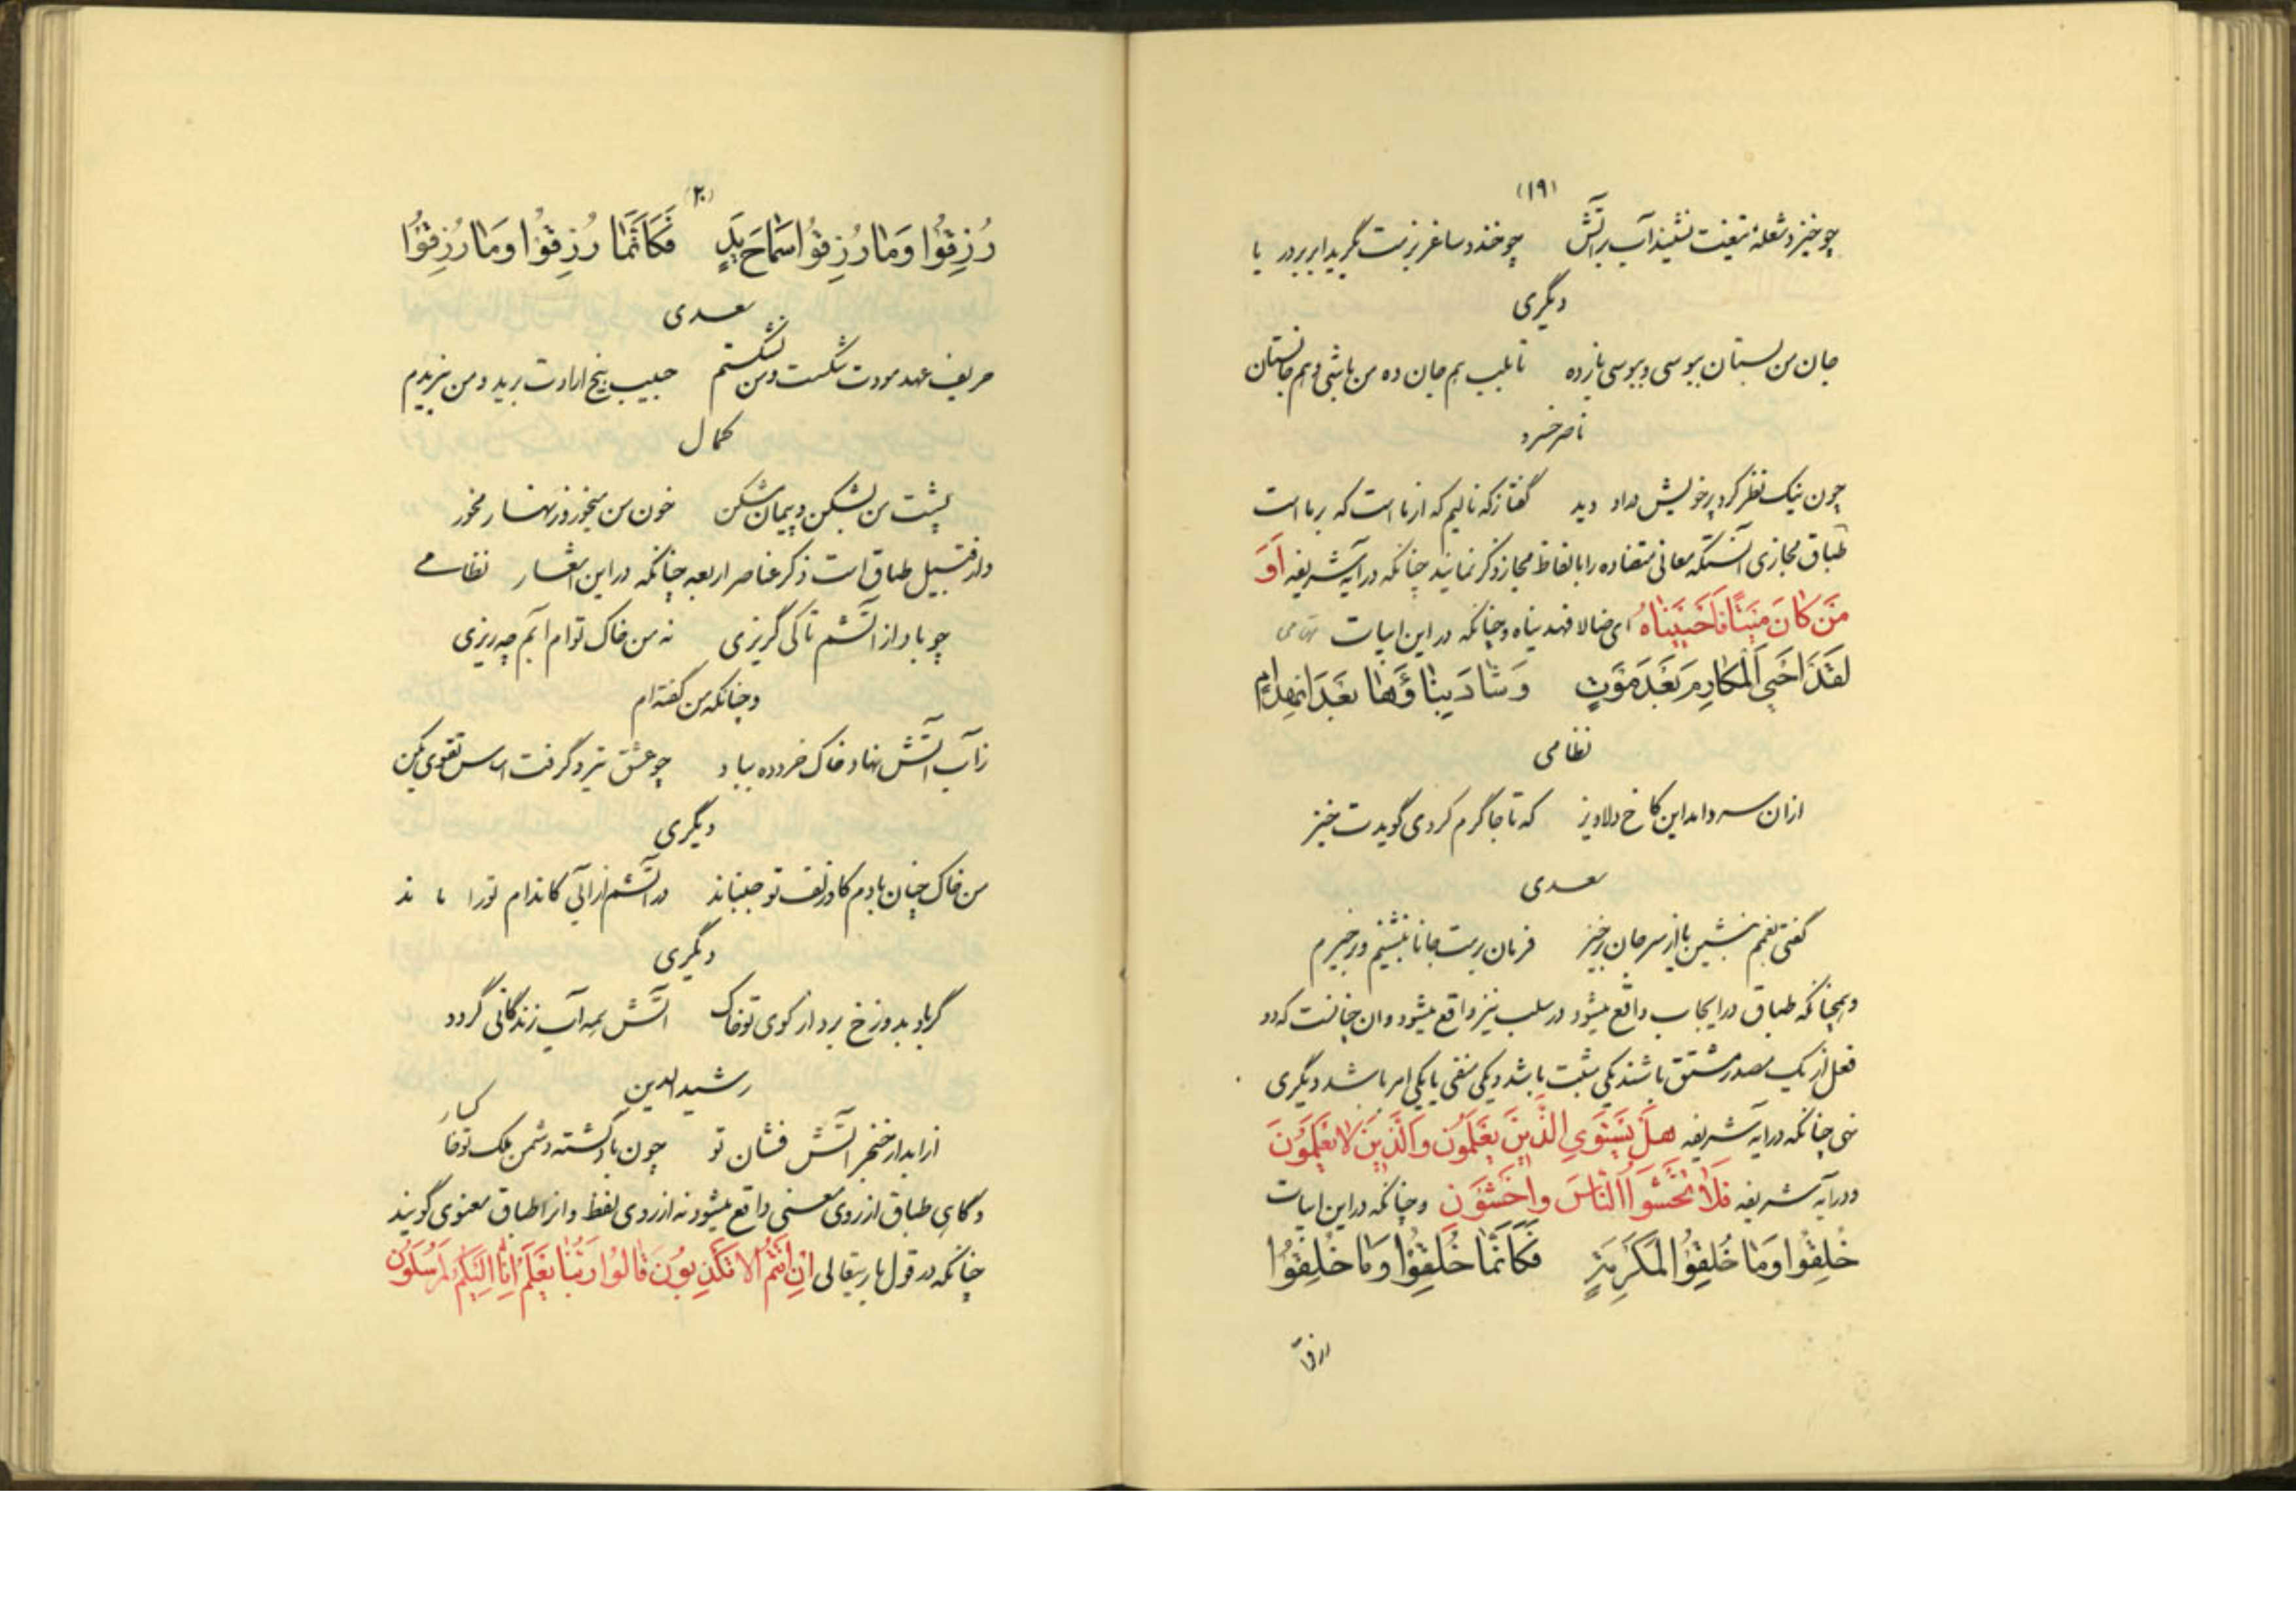 (۱۹)
چو خیزد شعلهٔ تیغت نشیند آب بر آتش چو خندد ساغر بزمت گرید ابر بر دریا
دیگری
جان من بستان ببوسی و ببوسی باز ده تا بلب هم جان ده من باشی و هم جانستان
ناصر خسرو
چون نیک نظر کرد پر خویش در او دید گفتا ز که نالیم که از ماست که بر ماست
طباق مجازی آنستکه معانی متضاده را با الفاظ مجاز ذکر نمایند چنانکه در آیه شریفه اَوَ
مَنْ كانَ مَيْتًا فَاَحْيَيْناهُ ای ضالا فهدیناه و چنانکه در این ابیات تهامی
لَقَدْ اَحْيَى الْمَكارِمَ بَعْدَ مَوْتٍ وَ شادَ بِناؤَها بَعْدَ انْهِدامٍ
نظامی
از ان سرد امد این کاخ دلاویز که تا جا گرم کردی گویدت خیز
سعدی
گفتی بغمم بنشین یا از سر جان برخیز فرمان برمت جانا بنشینم و برخیزم
و همچنانکه طباق در ایجاب واقع میشود در سلب نیز واقع میشود و ان چنانست که دو
فعل از یک مصدر مشتق باشند یکی مثبت باشد و یکی منفی یا یکی امر باشد دیگری
نهی چنانکه در ایه شریفه هَلْ يَسْتَوِي الَّذينَ يَعْلَمُونَ وَالَّذينَ لا يَعْلَمُونَ
و در ایه شریفه فَلا تَخْشَوُا النّاسَ وَاخْشَوْنِ و چنانکه در این ابیات
خُلِقُوا وَما خُلِقُوا لِمَكْرُمَةٍ فَكَاَنَّما خُلِقُوا وَما خُلِقُوا
رزقوا
(۲۰)
رُزِقُوا وَما رُزِقُوا سَماحَ يَدٍ فَكَاَنَّما رُزِقُوا وَما رُزِقُوا
سعدی
حریف عهد مودت شکست و من نشکستم حبیب بیخ ارادت برید و من نبریدم
کمال
پشت من بشکن و پیمان مشکن خون من میخور و زنهار مخور
و از قبیل طباق است ذکر عناصر اربعه چنانکه در این اشعار نظامی
چو باد از آتشم تا کی گریزی نه من خاک توام آبم چه ریزی
و چنانکه من گفته ام
ز آب آتش نهاد خاک خرد ده بباد چو عشق تیزد گرفت اساس تقوی بکن
دیگری
من خاک چنان بادم کاو زلف تو جنباند در آتشم از آبی کاندام تو را ماند
دیگری
گر باد بدوزخ برد از کوی تو خاک آتش همه آب زندگانی گردد
رشید الدین
از ابدار خنجر آتش فشان تو چون باد گشته دشمن ملک تو خاکسار
و گاهی طباق از روی معنی واقع میشود نه از روی لفظ و انرا طباق معنوی گویند
چنانکه در قول باریتعالی اِنْ اَنْتُمْ اِلّا تَكْذِبُونَ قالُوا رَبُّنا يَعْلَمُ اِنّا اِلَيْكُمْ لَمُرْسَلُونَ